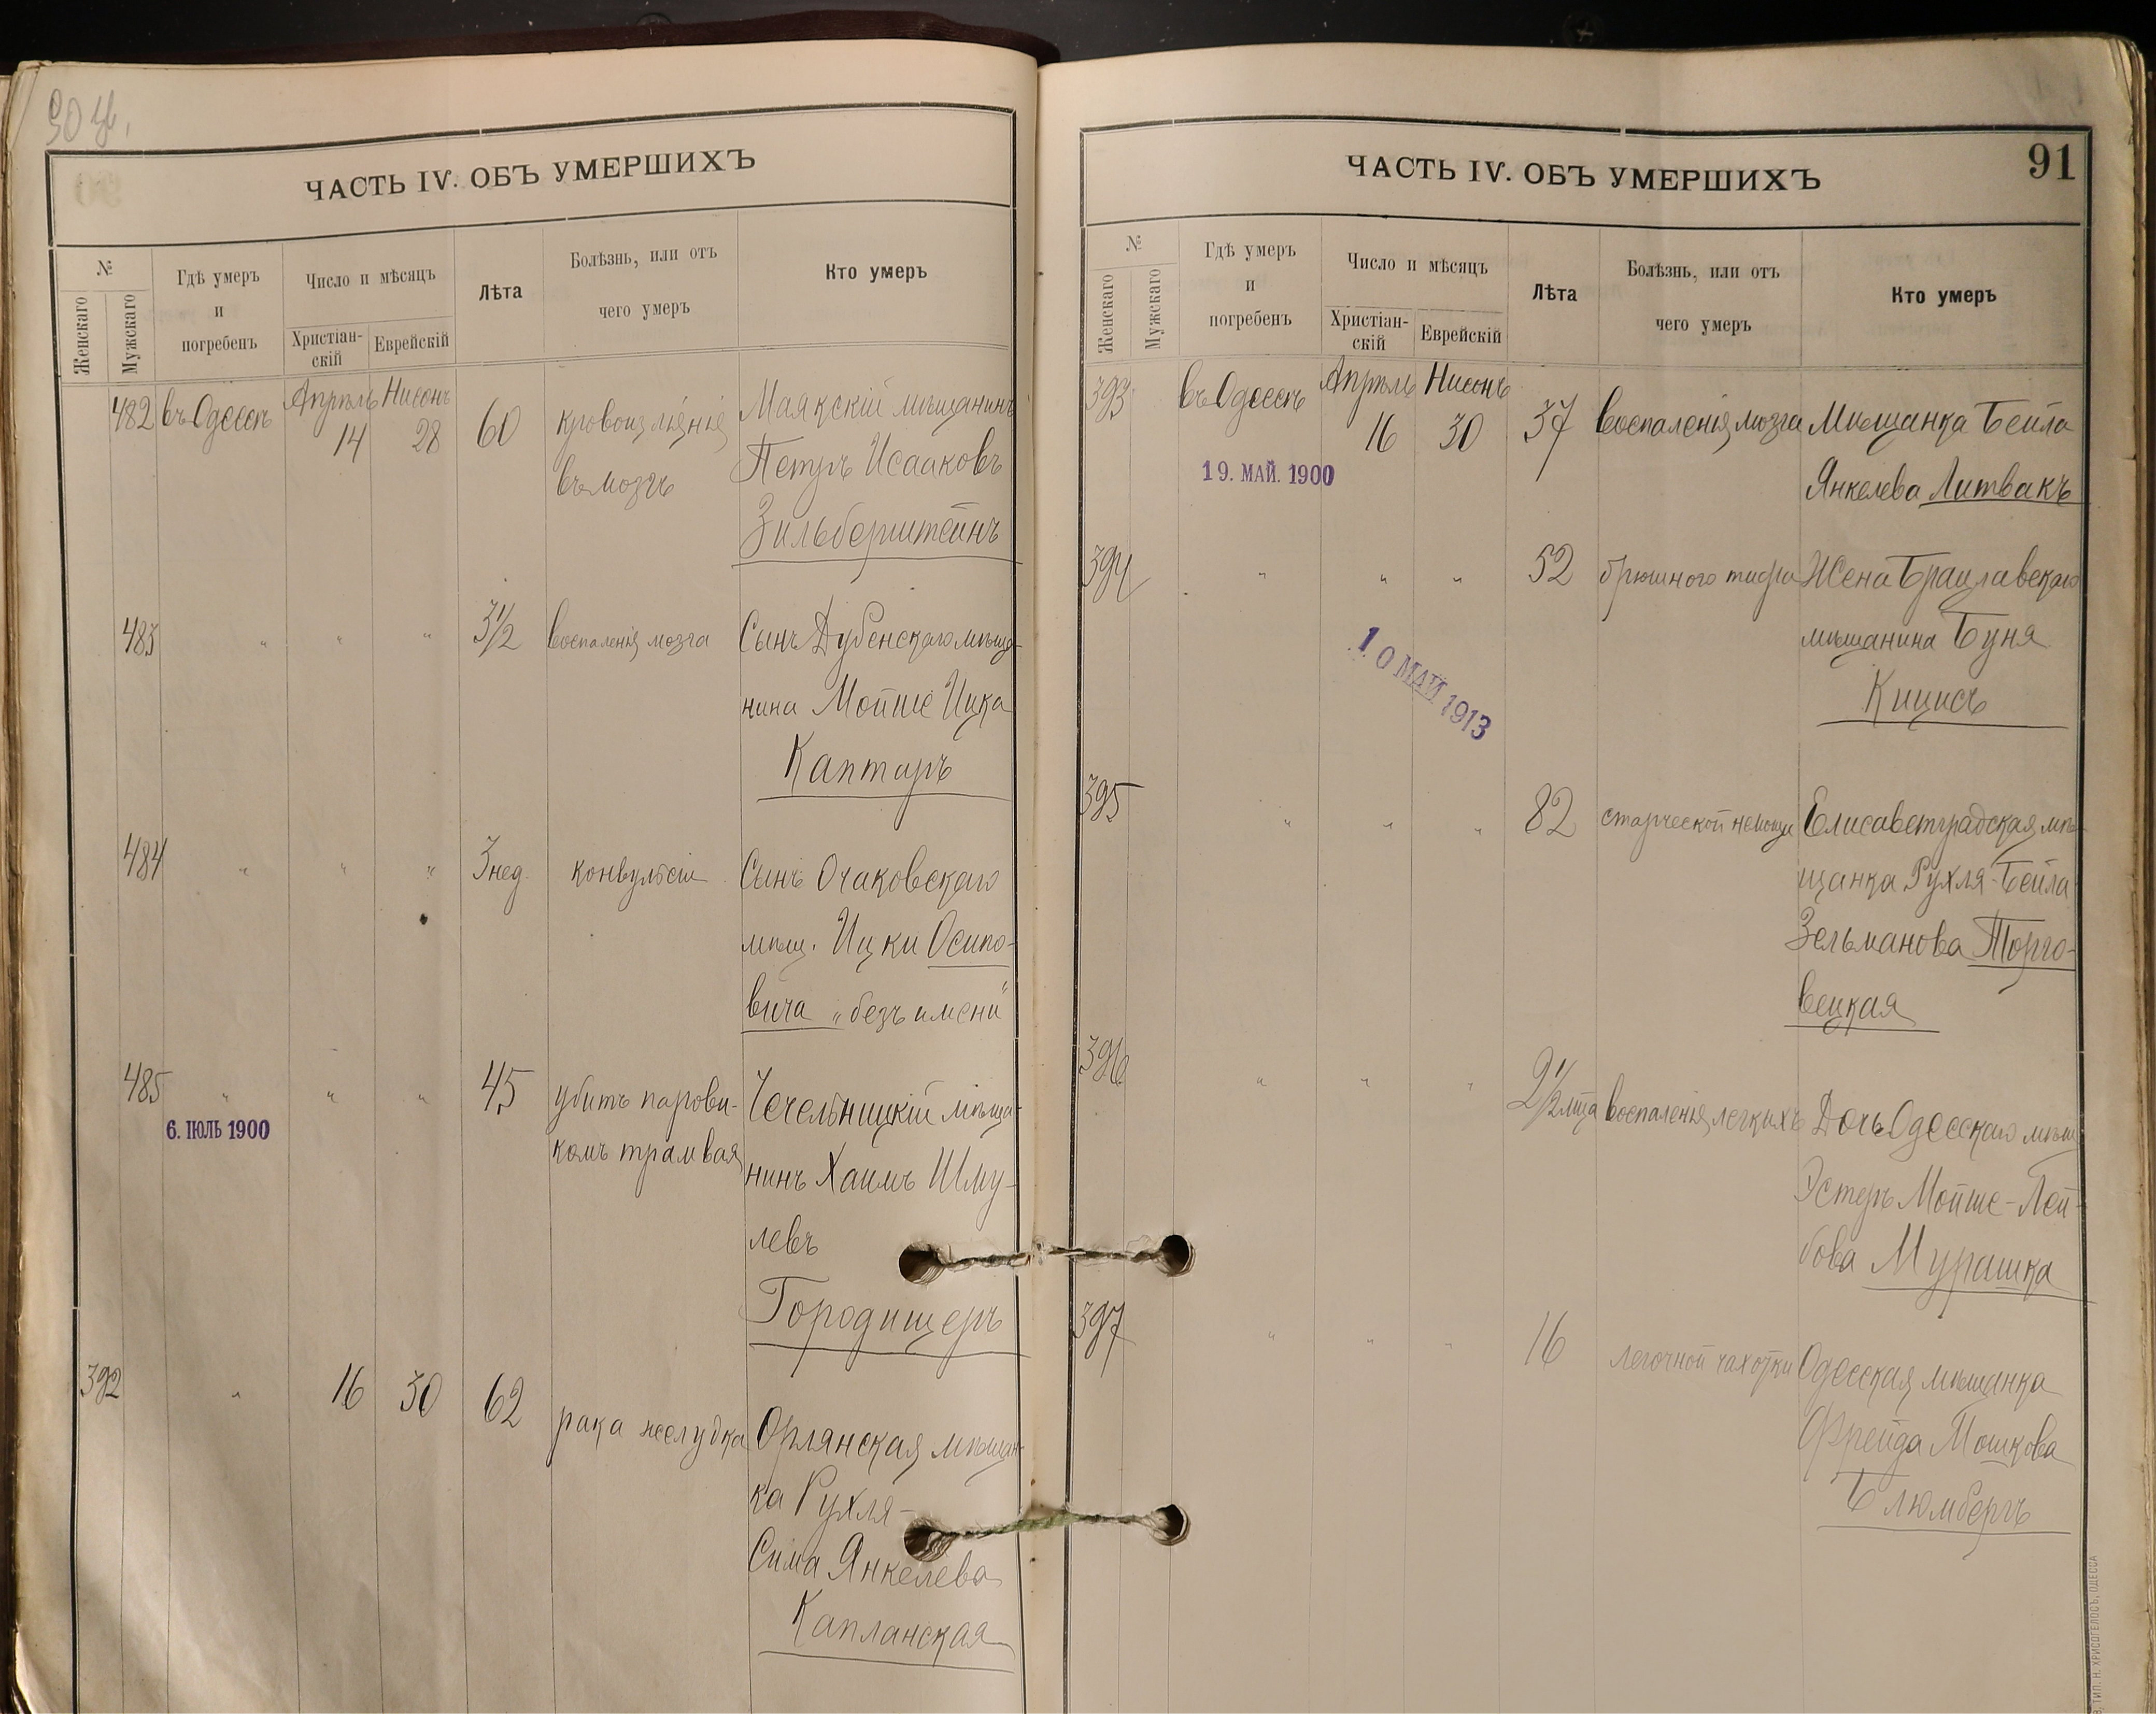 90 об.
ЧАСТЬ IV. ОБЪ УМЕРШИХЪ
№
Женскаго
Мужскаго
Гдѣ умеръ
и
погребенъ
Число и мѣсяцъ
Христіан-
скій
Еврейскій
Лѣта
Болѣзнь, или отъ
чего умеръ
Кто умеръ
482 въ Одессѣ Апрѣль 14 Нисонъ 28 60
кровоизліянія
въ мозгъ
Маякскій мѣщанинъ
Петръ Исааковъ
Зильберштейнъ
483 " " " 3 1/2 воспаленія мозга
Сынъ Дубенскаго мѣща-
нина Мойше Ицка
Каптаръ
484 " " " 3 нед. конвульсіи
Сынъ Очаковскаго
мѣщ. Ицки Осипо-
вича „безъ имени"
485 " " " 45
6. ІЮЛЬ 1900
убитъ парови-
комъ трамвая
Чечельницкій мѣща-
нинъ Хаимъ Шму-
левъ
Городищеръ
392 " 16 30 62 рака желудка
Орлянская мѣщан-
ка Рухля-
Сима Янкелева
Капланская
ЧАСТЬ IV. ОБЪ УМЕРШИХЪ
91
№
Женскаго
Мужскаго
Гдѣ умеръ
и
погребенъ
Число и мѣсяцъ
Христіан-
скій
Еврейскій
Лѣта
Болѣзнь, или отъ
чего умеръ
Кто умеръ
393 въ Одессѣ Апрѣль 16 Нисонъ 30 37 воспаленія мозга
19. МАЙ. 1900
Мѣщанка Бейла
Янкелева Литвакъ
394 " " " 52 брюшного тифа
10 МАЙ 1913
Жена Брацлавскаго
мѣщанина Буня
Кицисъ
395 " " " 82 старческой немощи
Елисаветградская мѣ-
щанка Рухля-Бейла
Зельманова Торго-
вецкая
396 " " " 2 1/2 мѣца воспаленія легкихъ
Дочь Одесскаго мѣщ.
Эстеръ Мойше-Лей-
бова Мурашка
397 " " " 16 легочной чахотки
Одесская мѣщанка
Фрейда Мошкова
Блюмбергъ
ТИП. Н. ХРИСОГЕЛОСЪ, ОДЕССА